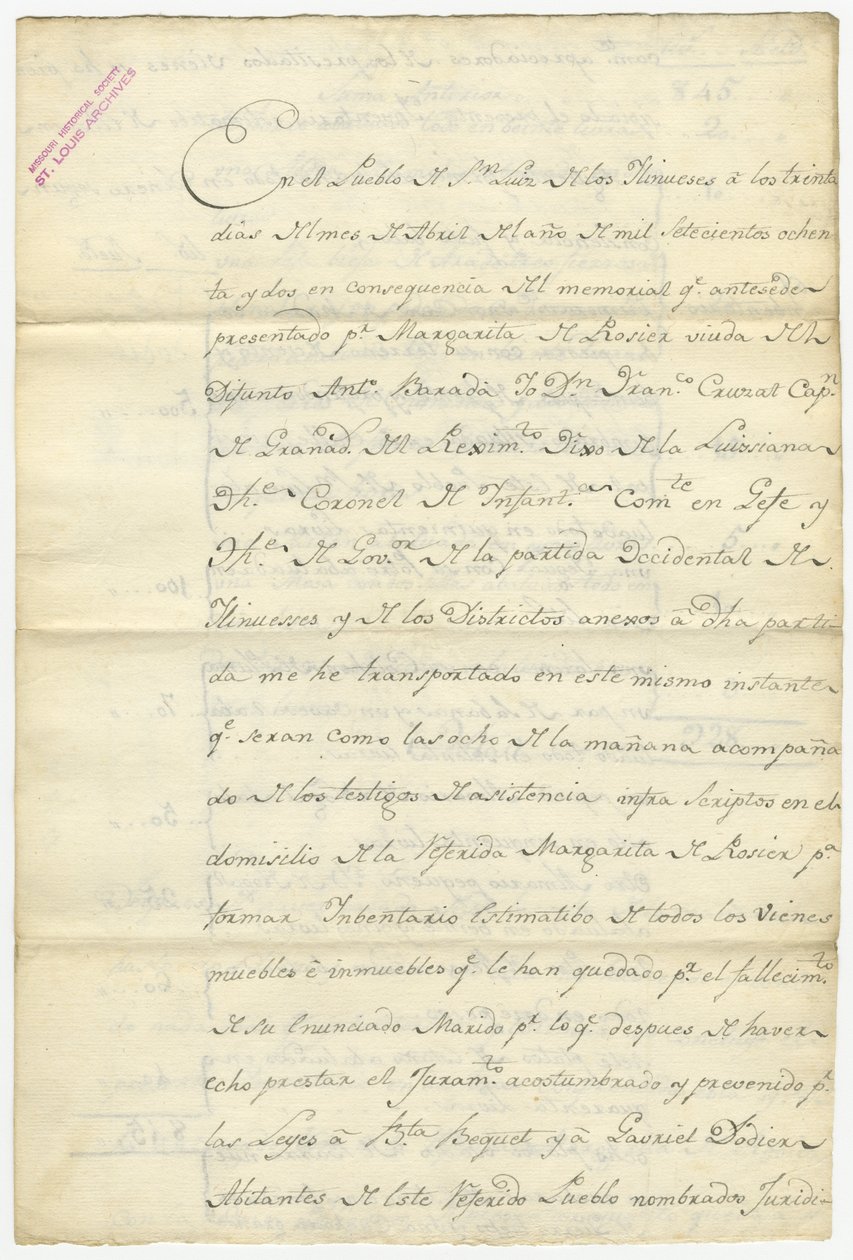 MISSOURI HISTORICAL SOCIETY
ST. LOUIS ARCHIVES
En el Pueblo de Sn Luiz de los Ilinueses â los treinta
dias del mes de Abril del año de mil setecientos ochen
ta y dos en consequencia del memorial qe. antesede
presentado pr. Margarita de Rosier viuda del
Difunto Anto. Baradà Yo Dn. Franco Cruzat Capn.
de Granads. del Reximto. Fixo de la Luissiana
The. Coronel de Infanta. Comte en Gefe y
The. de Govor. de la partida Occidental de
Ilinuesses y de los Districtos anexos â dha parti-
da me he transportado en este mismo instante
qe. seran como las ocho de la mañana acompaña
do de los testigos de asistencia infra scriptos en el
domisilio de la referida Margarita de Rosier pa.
formar Inbentario Estimatibo de todos los vienes
muebles è inmuebles qe. le han quedado pr. el fallecimto.
de su enunciado Marido pr. lo qe. despues de haver
echo prestar el Juramto. acostumbrado y prevenido pr.
las Leyes â Bta Bequet y â Gavriel Dodier
Abitantes de este referido Pueblo nombrados Juridi-